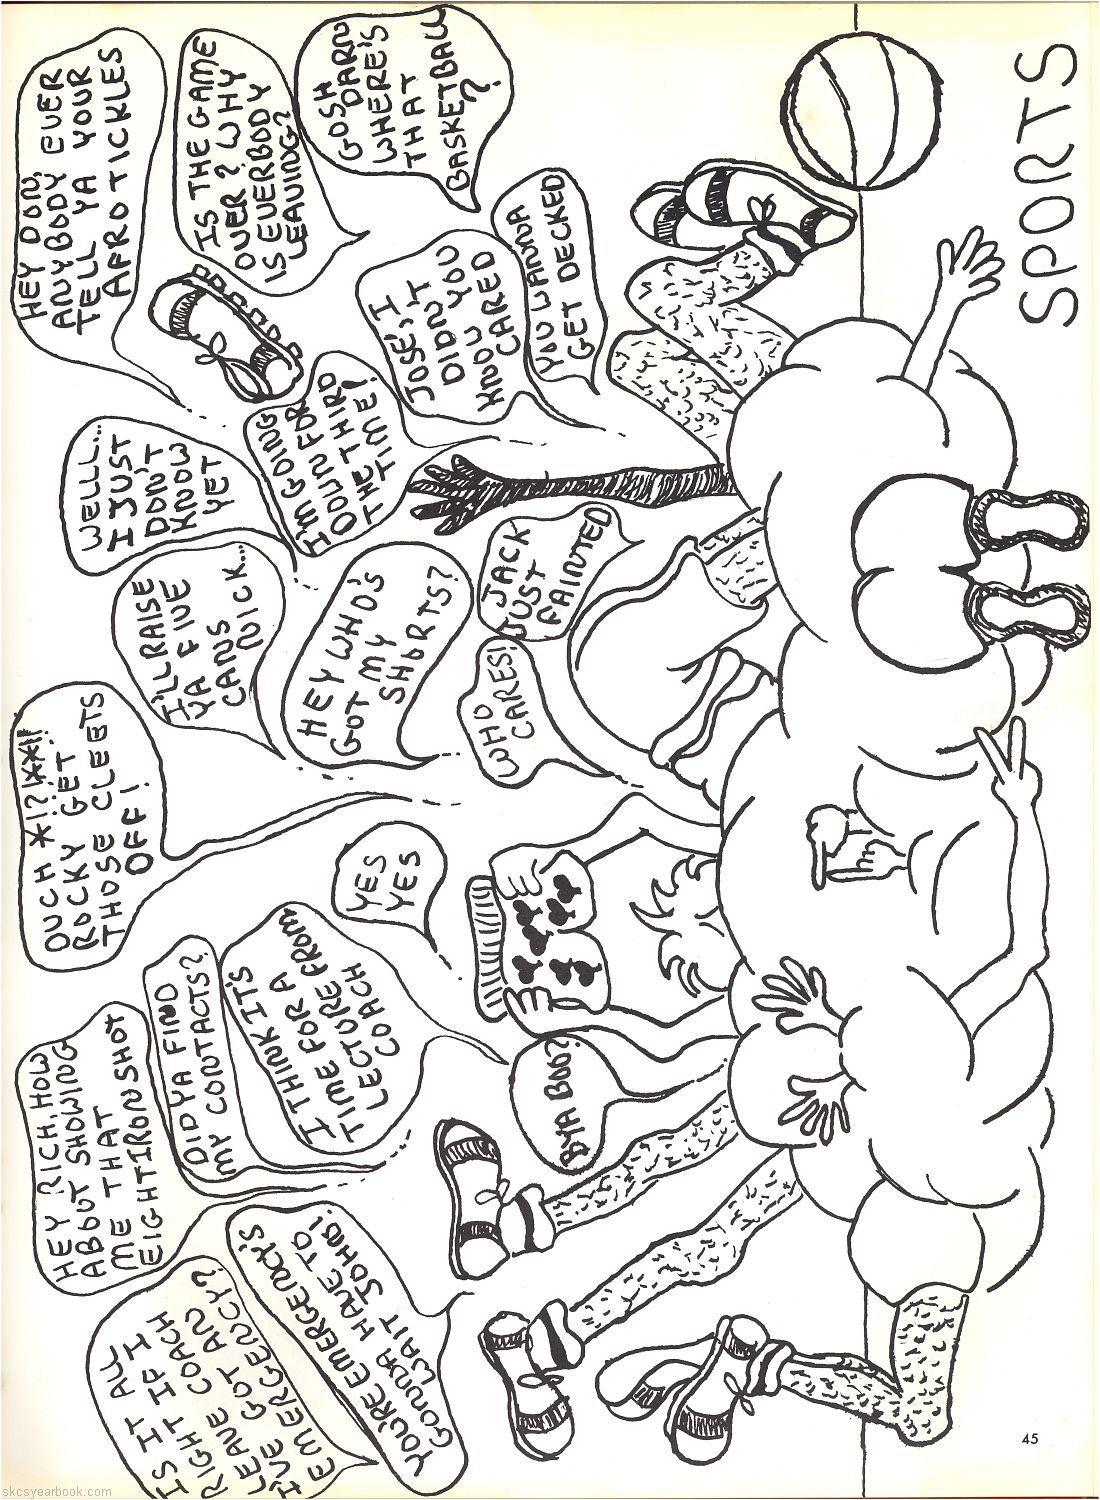 SPORTS
IS IT ALL
RIGHT IF I
LEAVE COACH
I'VE GOT AN
EMERGENCY?
YOU'RE EMERGENCY'S
GONNA HAVE TO
WAIT JOHN!
HEY RICH, HOW
ABOUT SHOWING
ME THAT
EIGHTIRONSHOT
DIDYA FIND
MY CONTACTS?
I THINK IT'S
TIME FOR A
LECTURE FROM
COACH
BYA BOD?
YES
YES
OUCH *!?!**!!
ROCKY GET
THOSE CLEETS
OFF!
I'LL RAISE
YA FIVE
CANS
NICK...
HEY WHO'S
GOT MY
SHORTS?
WHO
CARES!
JACK
JUST
FAINTED
WELLL...
I JUST
DON'T
KNOW
YET
I'M GOING
DOWN FOR
THE THIRD
TIME!
JOSE', I
DIDN'T
KNOW YOU
CARED
YOU WANNA
GET DECKED
HEY DON,
ANYBODY EVER
TELL YA YOUR
AFRO TICKLES
IS THE GAME
OVER? WHY
IS EVERBODY
LEAVING?
GOSH
DARN
WHERE'S
THAT
BASKETBALL
?
45
skcsyearbook.com